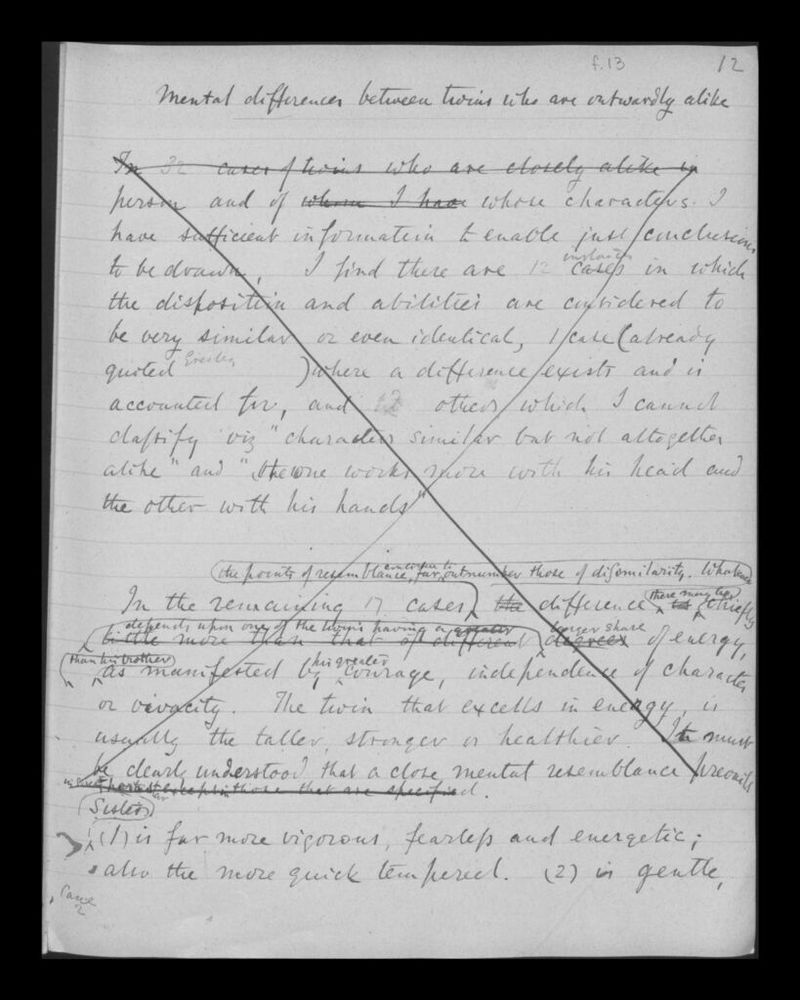 f.13
12
Mental differences between twins who are outwardly alike
In 32 cases of twins who are closely alike in
person and of whom I have whose characters I
have sufficient information to enable just conclusions
instances
to be drawn, I find there are 12 cases in which
the disposition and abilities are considered to
be very similar or even identical, 1 case (already
quoted ) where a difference exists and is
accounted for, and 2 others which I cannot
classify viz "characters similar but not altogether
alike" and "the one works more with his head and
the other with his hands"
the points of resemblance, far, outnumber those of disimilarity. Whatever
In the remaining 17 cases, the difference there may be, chiefly
depends upon one of the twins having a greater larger share
little more than that of different degrees of energy,
than his brother his greater
as manifested by courage, independence of character
or vivacity. The twin that excells in energy, is
usually the taller, stronger or healthier. It must
be clearly understood that a close mental resemblance prevails
those that are specified.
Sisters
(1) is far more vigorous, fearless and energetic;
also the more quick tempered. (2) is gentle,
Case
2